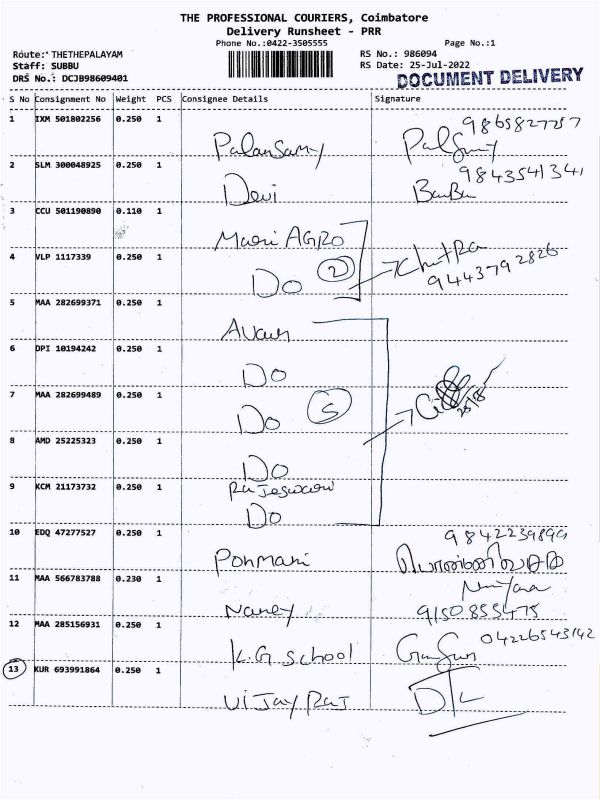 THE PROFESSIONAL COURIERS, Coimbatore
Delivery Runsheet - PRR
Phone No.:0422-3505555 Page No.:1
Route: THETHEPALAYAM RS No.: 986094
Staff: SUBBU RS Date: 25-Jul-2022
DRS No.: DCJB98609401 DOCUMENT DELIVERY
S No Consignment No Weight PCS Consignee Details Signature
1 IXM 501802256 0.250 1
Palansamy
2 SLM 300048925 0.250 1 9843541341
Devi Banbu
3 CCU 501190890 0.110 1
Mari AGRO
4 VLP 1117339 0.250 1 Chitra
Do 2 9443792826
5 MAA 282699371 0.250 1
6 DPI 10194242 0.250 1
Do
7 MAA 282699489 0.250 1
Do 5
8 AMD 25225323 0.250 1
Do
9 KCM 21173732 0.250 1 Rajeswari
Do
10 EDQ 47277527 0.250 1
Ponmani
11 MAA 566783788 0.230 1
Nancy 9150855475
12 MAA 285156931 0.250 1 04226543142
K.G School
13 KUR 693991864 0.250 1
Vijay Raj